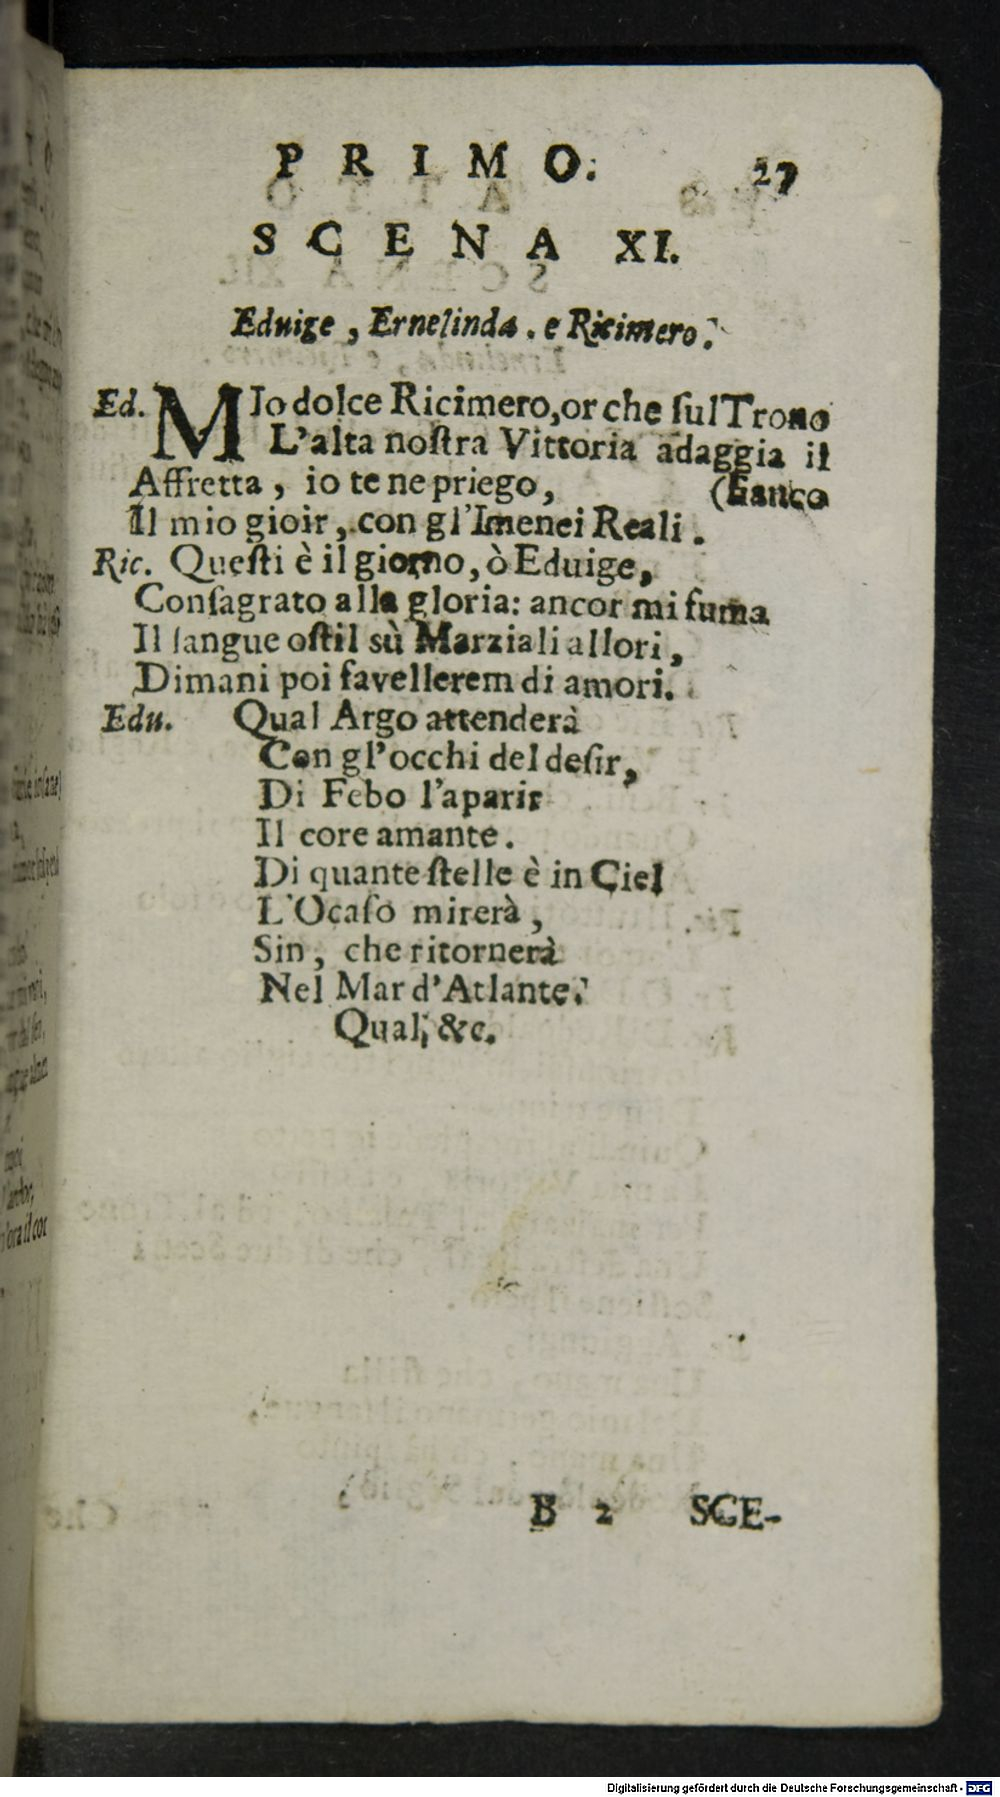 PRIMO. 27
SCENA XI.
Eduige, Ernelinda. e Ricimero.
Ed. MIo dolce Ricimero, or che ſul Trono
L'alta noſtra Vittoria adaggia il
Affretta, io te ne priego, (fianco
Il mio gioir, con gl'Imenei Reali.
Ric. Queſti è il giorno, ò Eduige,
Conſagrato alla gloria: ancor mi fuma
Il ſangue oſtil sù Marziali allori,
Dimani poi favellerem di amori.
Edu. Qual Argo attenderà
Con gl'occhi del deſir,
Di Febo l'aparir
Il core amante.
Di quante ſtelle è in Ciel
L'Ocaſo mirerà,
Sin, che ritornerà
Nel Mar d'Atlante.
Qual, &c.
B 2 SCE-
Digitalisierung gefördert durch die Deutsche Forschungsgemeinschaft - DFG